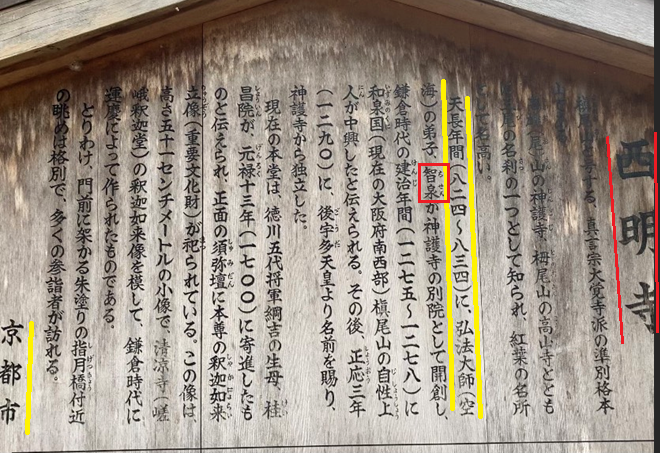 西明寺
真言宗大覚寺派の準別格本
尾山の神護寺、栂尾山の高山寺ととも
の名刹の一つとして知られ、紅葉の名所
名高い。
天長年間(八二四~八三四)に、弘法大師(空
海)の弟子、智泉が神護寺の別院として開創し、
鎌倉時代の建治年間(一二七五~一二七八)に
和泉国(現在の大阪府南西部)槇尾山の自性上
人が中興したと伝えられる。その後、正応三年
(一二九〇)に、後宇多天皇より名前を賜り、
神護寺から独立した。
現在の本堂は、徳川五代将軍綱吉の生母、桂
昌院が、元禄十三年(一七〇〇)に寄進したも
のと伝えられ、正面の須弥壇に本尊の釈迦如来
立像(重要文化財)が祀られている。この像は
高さ五十一センチメートルの小像で、清涼寺(嵯
峨釈迦堂)の釈迦如来像を模して、鎌倉時代に
運慶によって作られたものである。
とりわけ、門前に架かる朱塗りの指月橋付近
の眺めは格別で、多くの参詣者が訪れる。
京都市